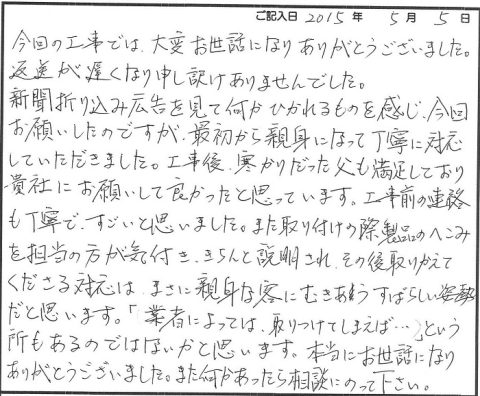 ご記入日 2015 年 5 月 5 日
今回の工事では、大変お世話になりありがとうございました。
返送が遅くなり申し訳ありませんでした。
新聞折り込み広告を見て何かひかれるものを感じ、今回
お願いしたのですが、最初から親身になって丁寧に対応
していただきました。工事後、寒がりだった父も満足しており
貴社にお願いして良かったと思っています。工事前の連絡
も丁寧で、すごいと思いました。また取り付けの際製品のへこみ
を担当の方が気付き、きちんと説明され、その後取りかえて
くださる対応は、まさに親身な客にむきあうすばらしい姿勢
だと思います。「業者によっては、取りつけてしまえば…」という
所もあるのではないかと思います。本当にお世話になり
ありがとうございました。また何かあったら相談にのって下さい。